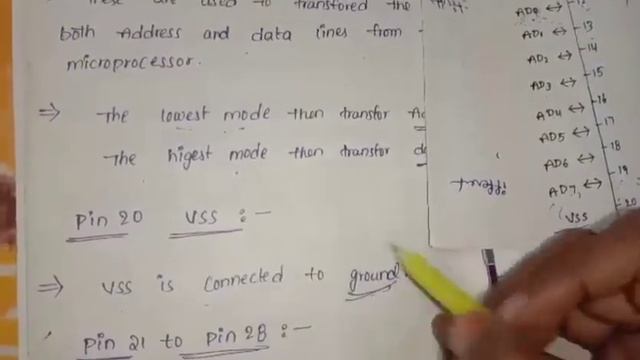 These are used to transfored the
both Address and data lines from
microprocessor.
⇒ The lowest mode then transfor Ad
The higest mode then transfor d
Pin 20 VSS :-
⇒ VSS is connected to ground
Pin 21 to Pin 28 :-
AD0 ↔ 12
AD1 ↔ 13
AD2 ↔ 14
AD3 ↔ 15
AD4 ↔ 16
AD5 ↔ 17
AD6 ↔
AD7 ↔ 19
VSS 20